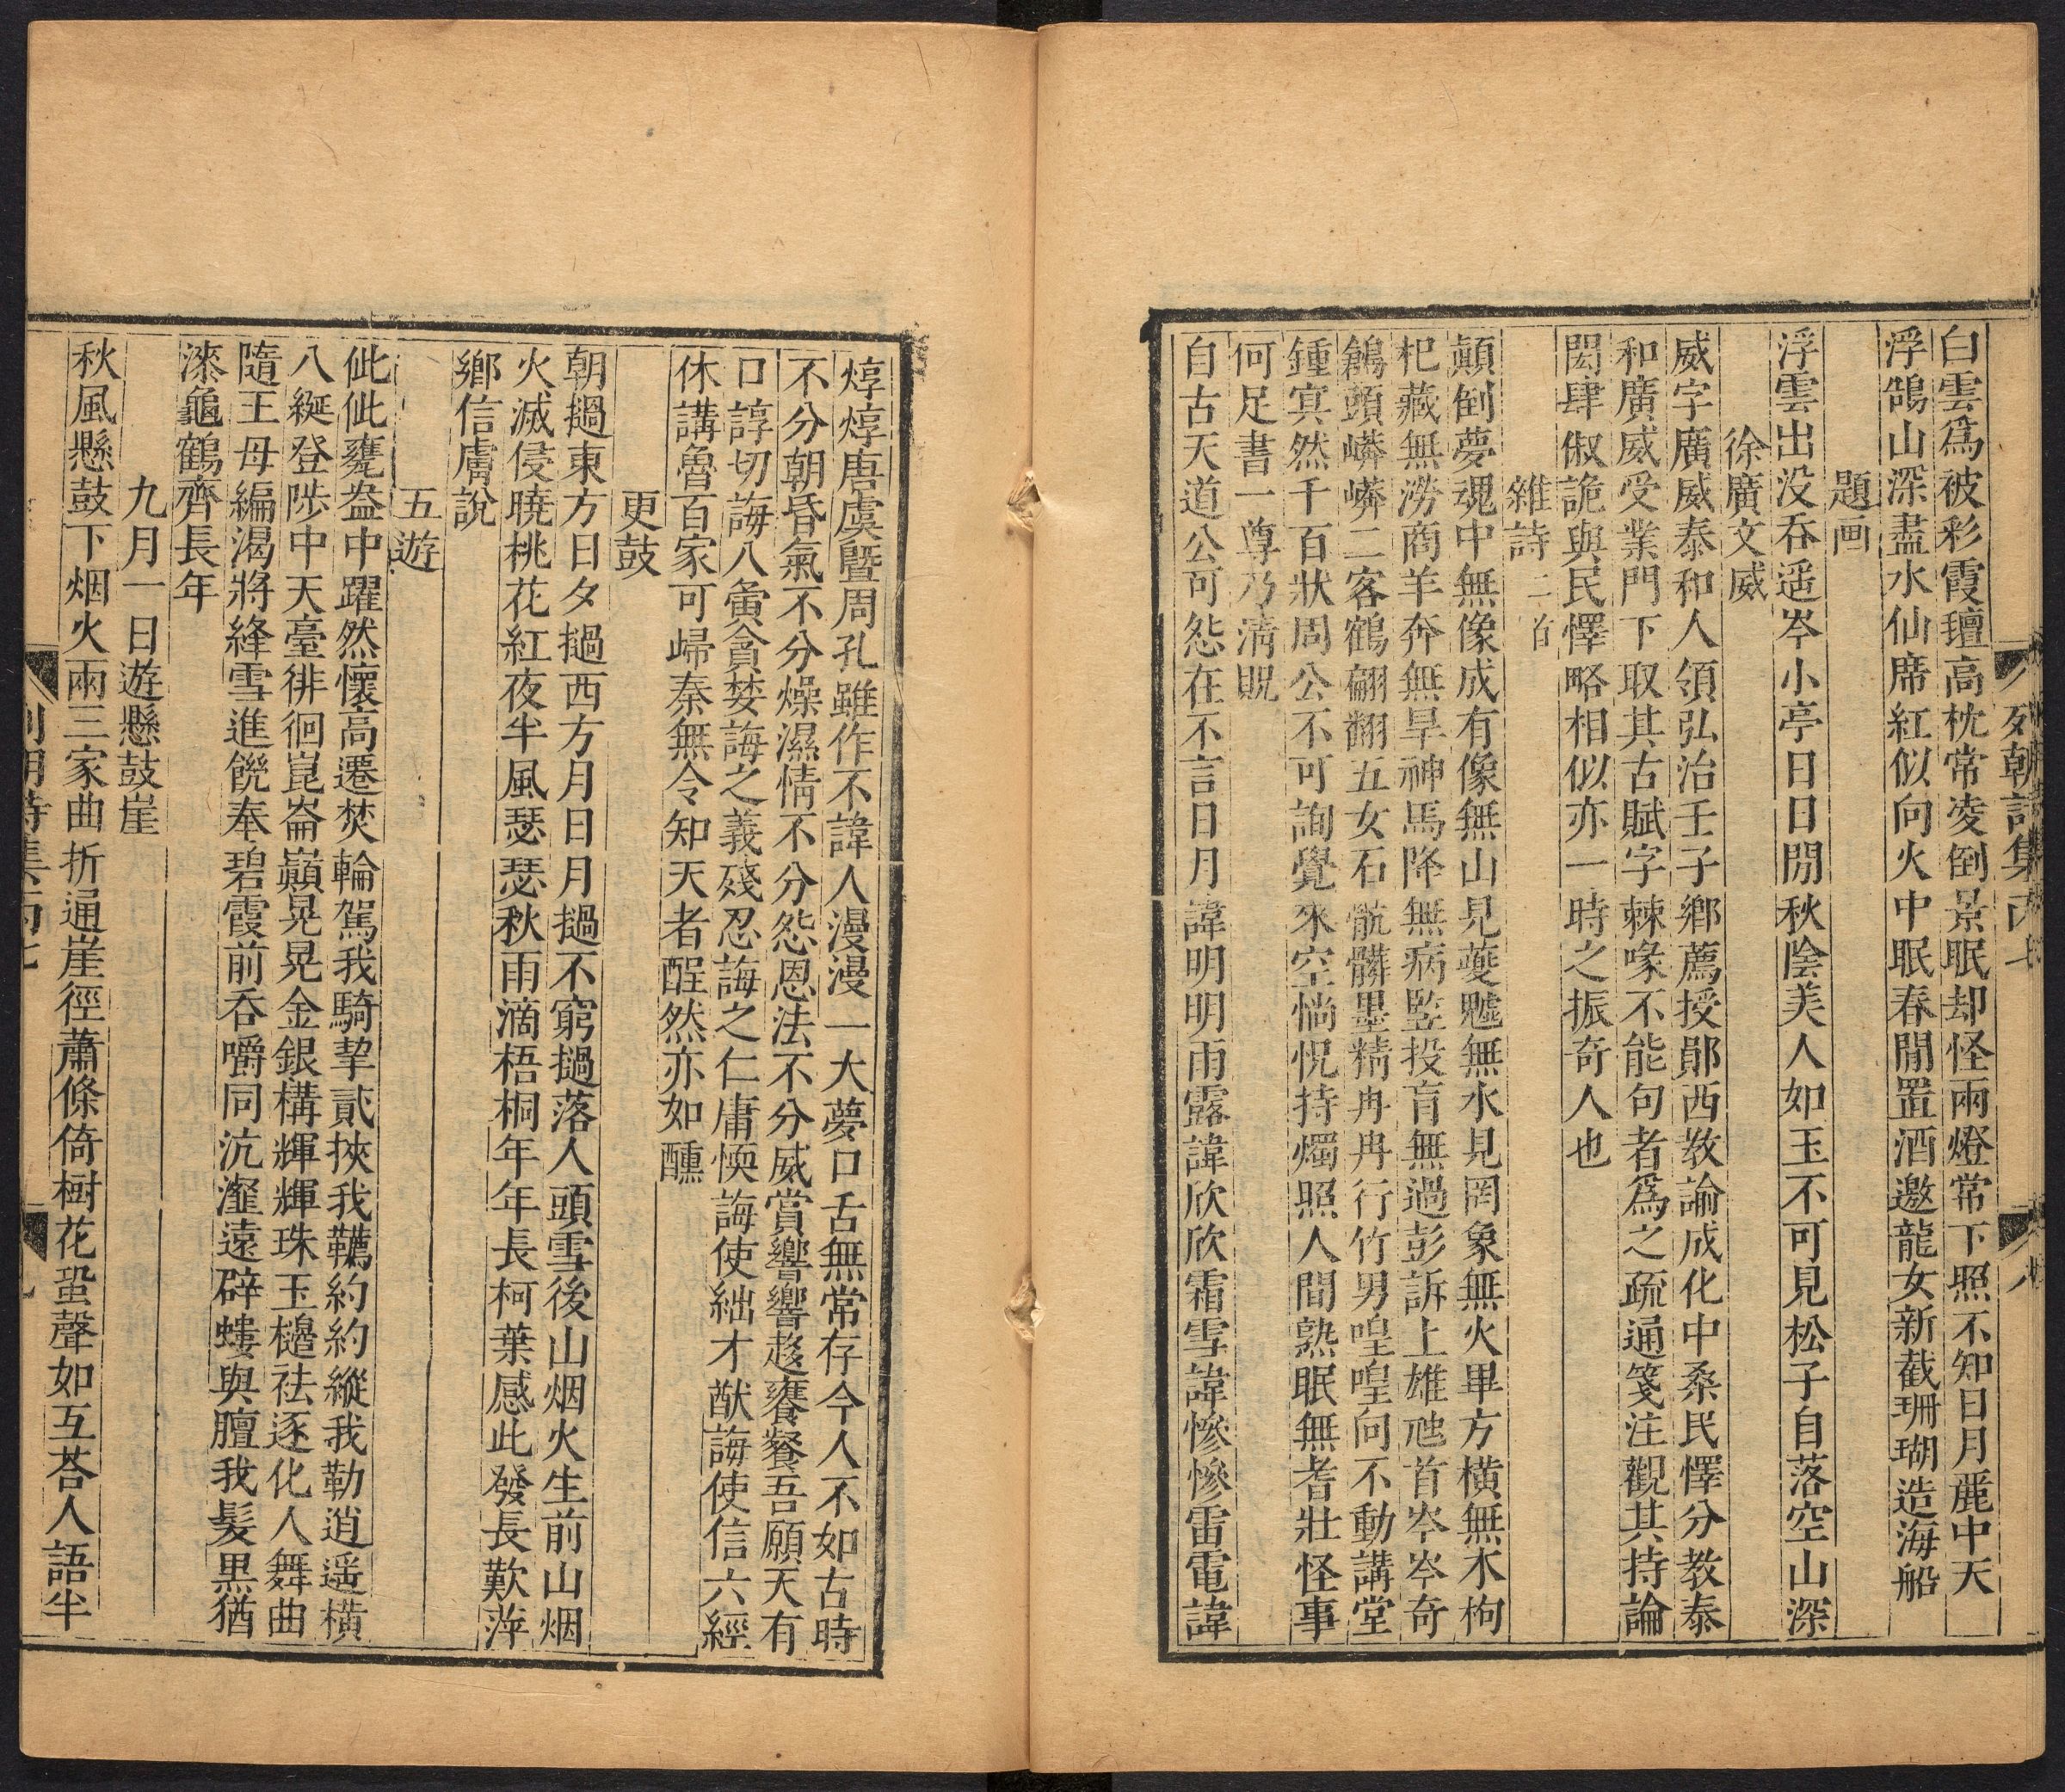 列朝詩集丙七
八
白雲爲被彩霞璮高枕常凌倒景眠却怪兩燈常下照不知日月麗中天
浮鵠山深盡水仙席紅似向火中眠春閒置酒邀龍女新截珊瑚造海船
題画
浮雲出没吞遥岑小亭日日閒秋陰美人如玉不可見松子自落空山深
徐廣文威
威字廣威泰和人領弘治壬子鄉薦授鄖西教諭成化中桑民懌分教泰
和廣威受業門下取其古賦字棘喙不能句者爲之疏通箋注觀其持論
閎肆俶詭與民懌略相似亦一時之振奇人也
維詩二首
顛倒夢魂中無像成有像無山見夔魖無水見罔象無火畢方横無木枸
杞藏無澇商羊奔無旱神馬降無病竪投肓無過彭訴上雄虺首岑岑奇
鶬頭㠔㠔二客鶴翩翻五女石骯髒墨精冉冉行竹男喤喤向不動講堂
鍾寘然千百狀周公不可詢覺來空惝怳持燭照人間熟眠無耆壯怪事
何足書一尊乃淸貺
自古天道公可怨在不言日月諱明明雨露諱欣欣霜雪諱慘慘雷電諱
焞焞唐虞暨周孔雖作不諱人漫漫一大夢口舌無常存今人不如古時
不分朝昏氣不分燥濕情不分怨恩法不分威賞響響趍饔餐吾願天有
口諄切誨八夤貪婪誨之義殘忍誨之仁庸愞誨使絀才猷誨使信六經
休講魯百家可歸秦無令知天者酲然亦如醺
更鼓
朝撾東方日夕撾西方月日月撾不窮撾落人頭雪後山烟火生前山烟
火滅侵曉桃花紅夜半風瑟瑟秋雨滴梧桐年年長柯葉感此發長歎萍
鄉信膚說
五遊
佌佌甕盎中躍然懷高遷焚輪駕我騎挈貳挾我韉約約縱我勒逍遥橫
八綖登陟中天臺徘徊崑崙巔晃晃金銀構輝輝珠玉櫋祛逐化人舞曲
隨王母編渴將絳雪進饑奉碧霞前吞嚼同沆瀣遠辟螻與膻我髮黑猶
漆龜鶴齊長年
九月一日遊懸鼓崖
秋風懸鼓下烟火兩三家曲折通崖徑蕭條倚樹花蛩聲如互荅人語半
列朝詩集丙七